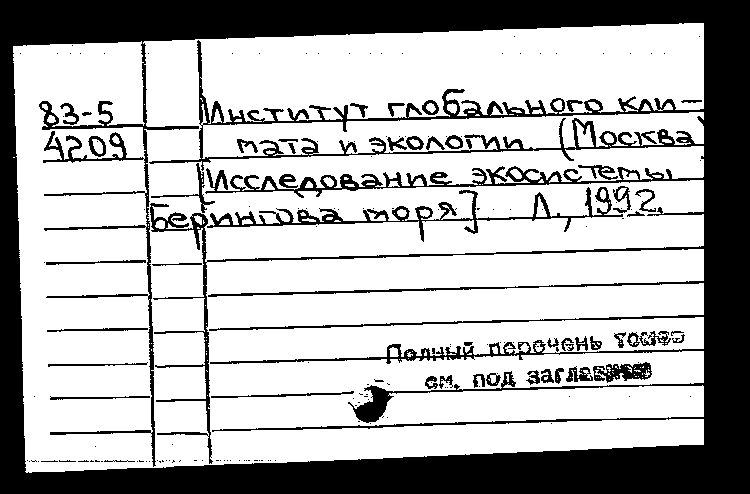 83-5 Институт глобального кли-
4209 мата и экологии (Москва)
[Исследование экосистемы
Берингова моря] Л., 1992.
Полный перечень томов
см. под заглавием